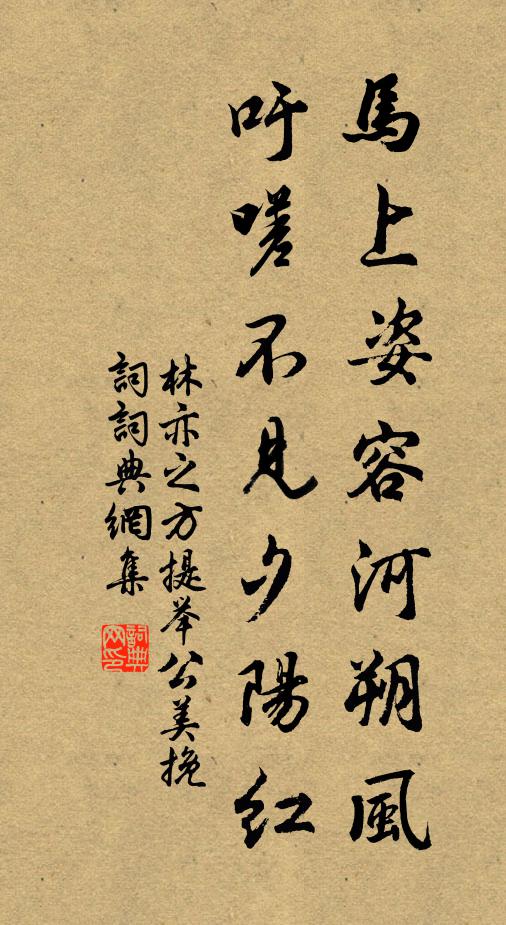 馬上姿容河朔風
吁嗟不見夕陽紅
林亦之方提举公美挽
詞詞典網集
詞典
网印